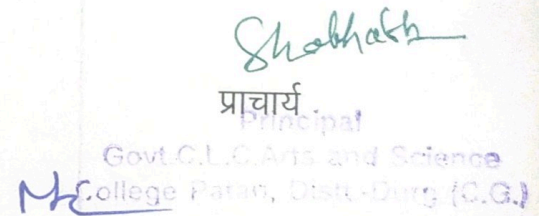 प्राचार्य
Principal
Govt.C.L.C.Arts and Science
College Patan, Distt.-Durg (C.G.)